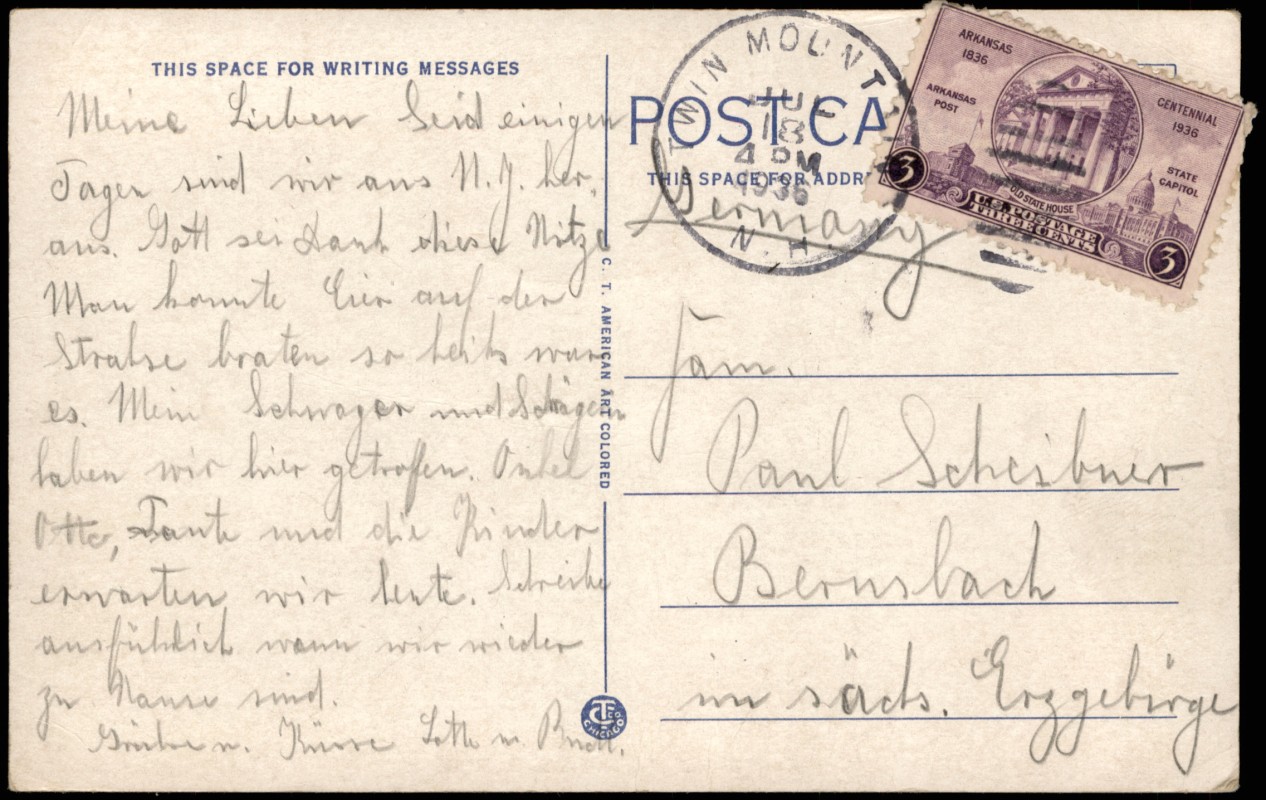 THIS SPACE FOR WRITING MESSAGES
Meine Lieben Seid einigen
Tagen sind wir aus N.Y. her,
aus. Gott sei Dank diese Hitze
Man konnte Eier auf der
Strahse braten so heihs war
es. Mein Schwager und Schwägerin
haben wir hier getroffen. Onkel
Otto, Tante und die Kinder
erwarten wir heute. Schreibe
ausführlich wann wir wieder
zu Hause sind.
Grühse u. Küsse Lotte u.
C. T. AMERICAN ART COLORED
CT CO CHICAGO
POST CA
THIS SPACE FOR ADDR
TWIN MOUNTAIN
JUL
18
4 PM
1936
N.H.
ARKANSAS
1836
ARKANSAS
POST
CENTENNIAL
1936
STATE
CAPITOL
OLD STATE HOUSE
U.S. POSTAGE
THREE CENTS
3
3
Germany
Fam.
Paul Scheibner
Bernsbach
im sächs. Erzgebirge